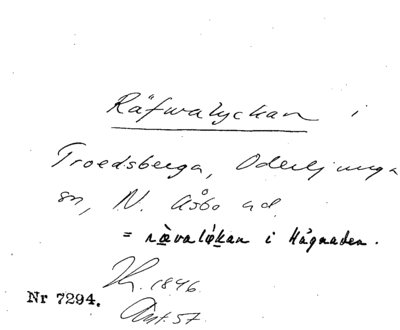 Räfwalyckan i
Troedsberga, Oderljunga
sn, N. Åsbo hd.
= rävalökan i Hägnaden.
1846.
Nr 7294.
Ant. 57